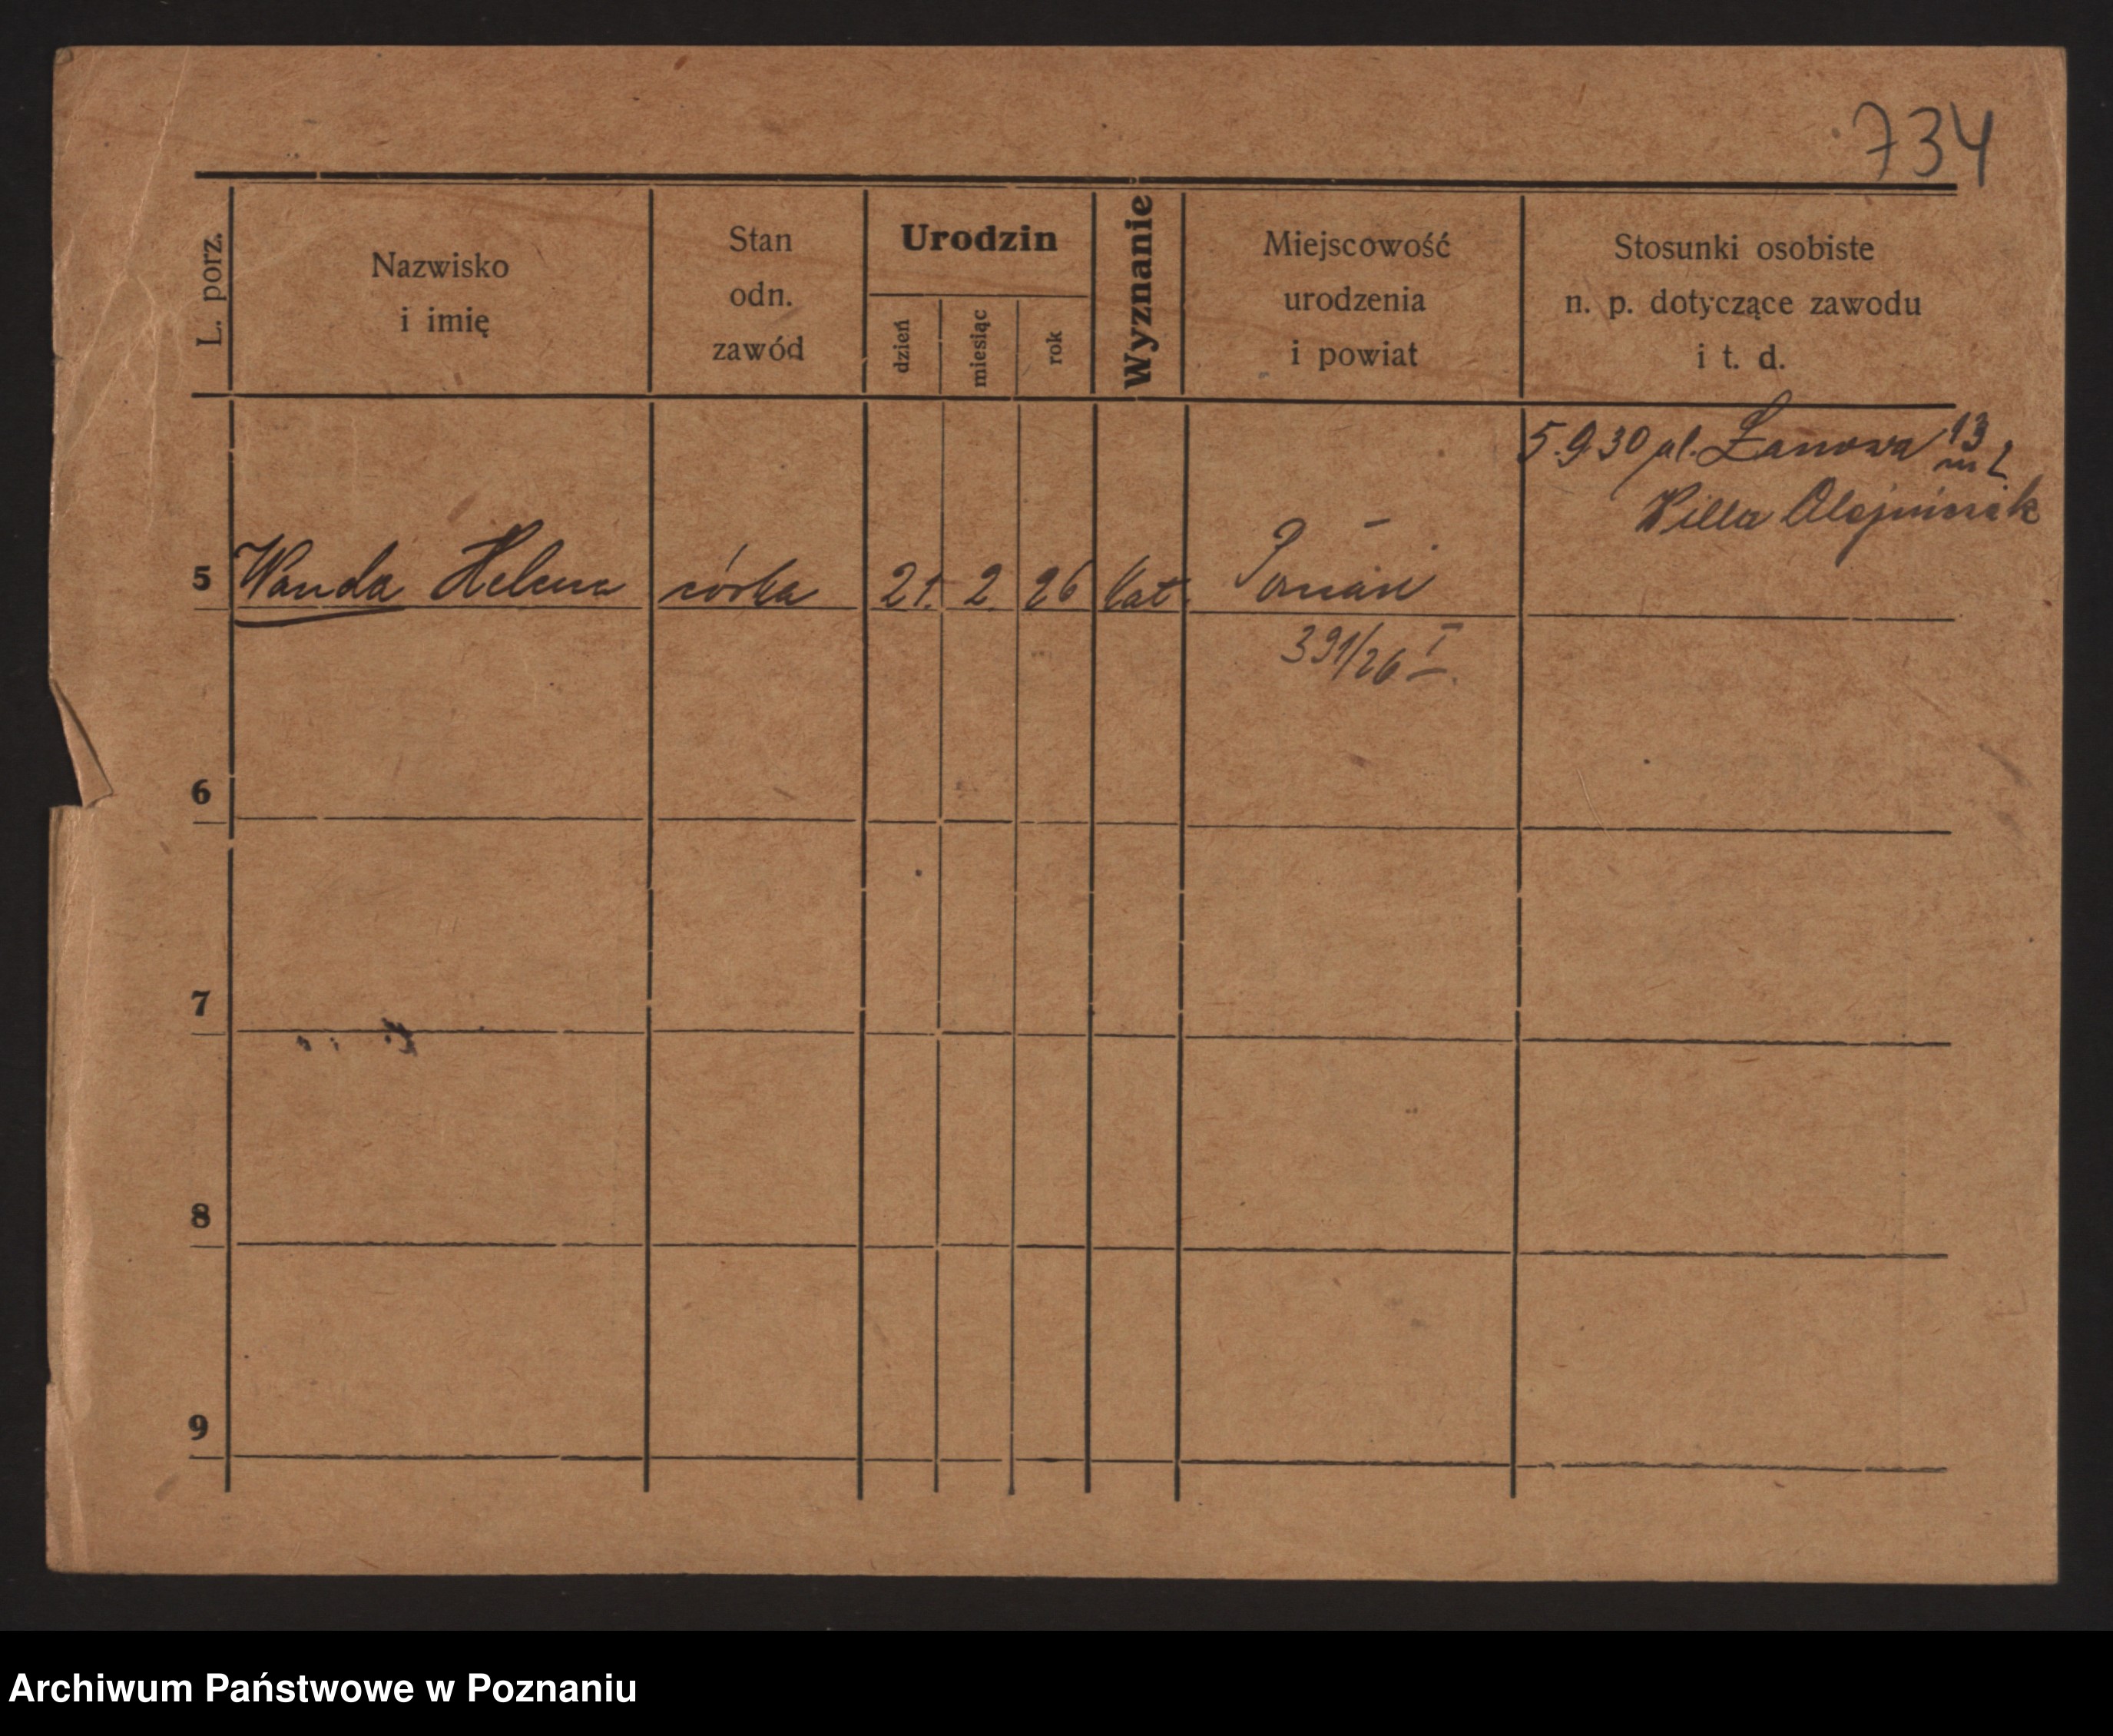 734
L. porz.
Nazwisko
i imię
Stan
odn.
zawód
Urodzin
dzień
miesiąc
rok
Wyznanie
Miejscowość
urodzenia
i powiat
Stosunki osobiste
n. p. dotyczące zawodu
i t. d.
5.9.30 ul. Łanowa 13
m 2
Willa Olejniczak
5 Wanda Helena córka 21. 2. 26 kat. Poznań
391/26 I.
6
7
8
9
Archiwum Państwowe w Poznaniu